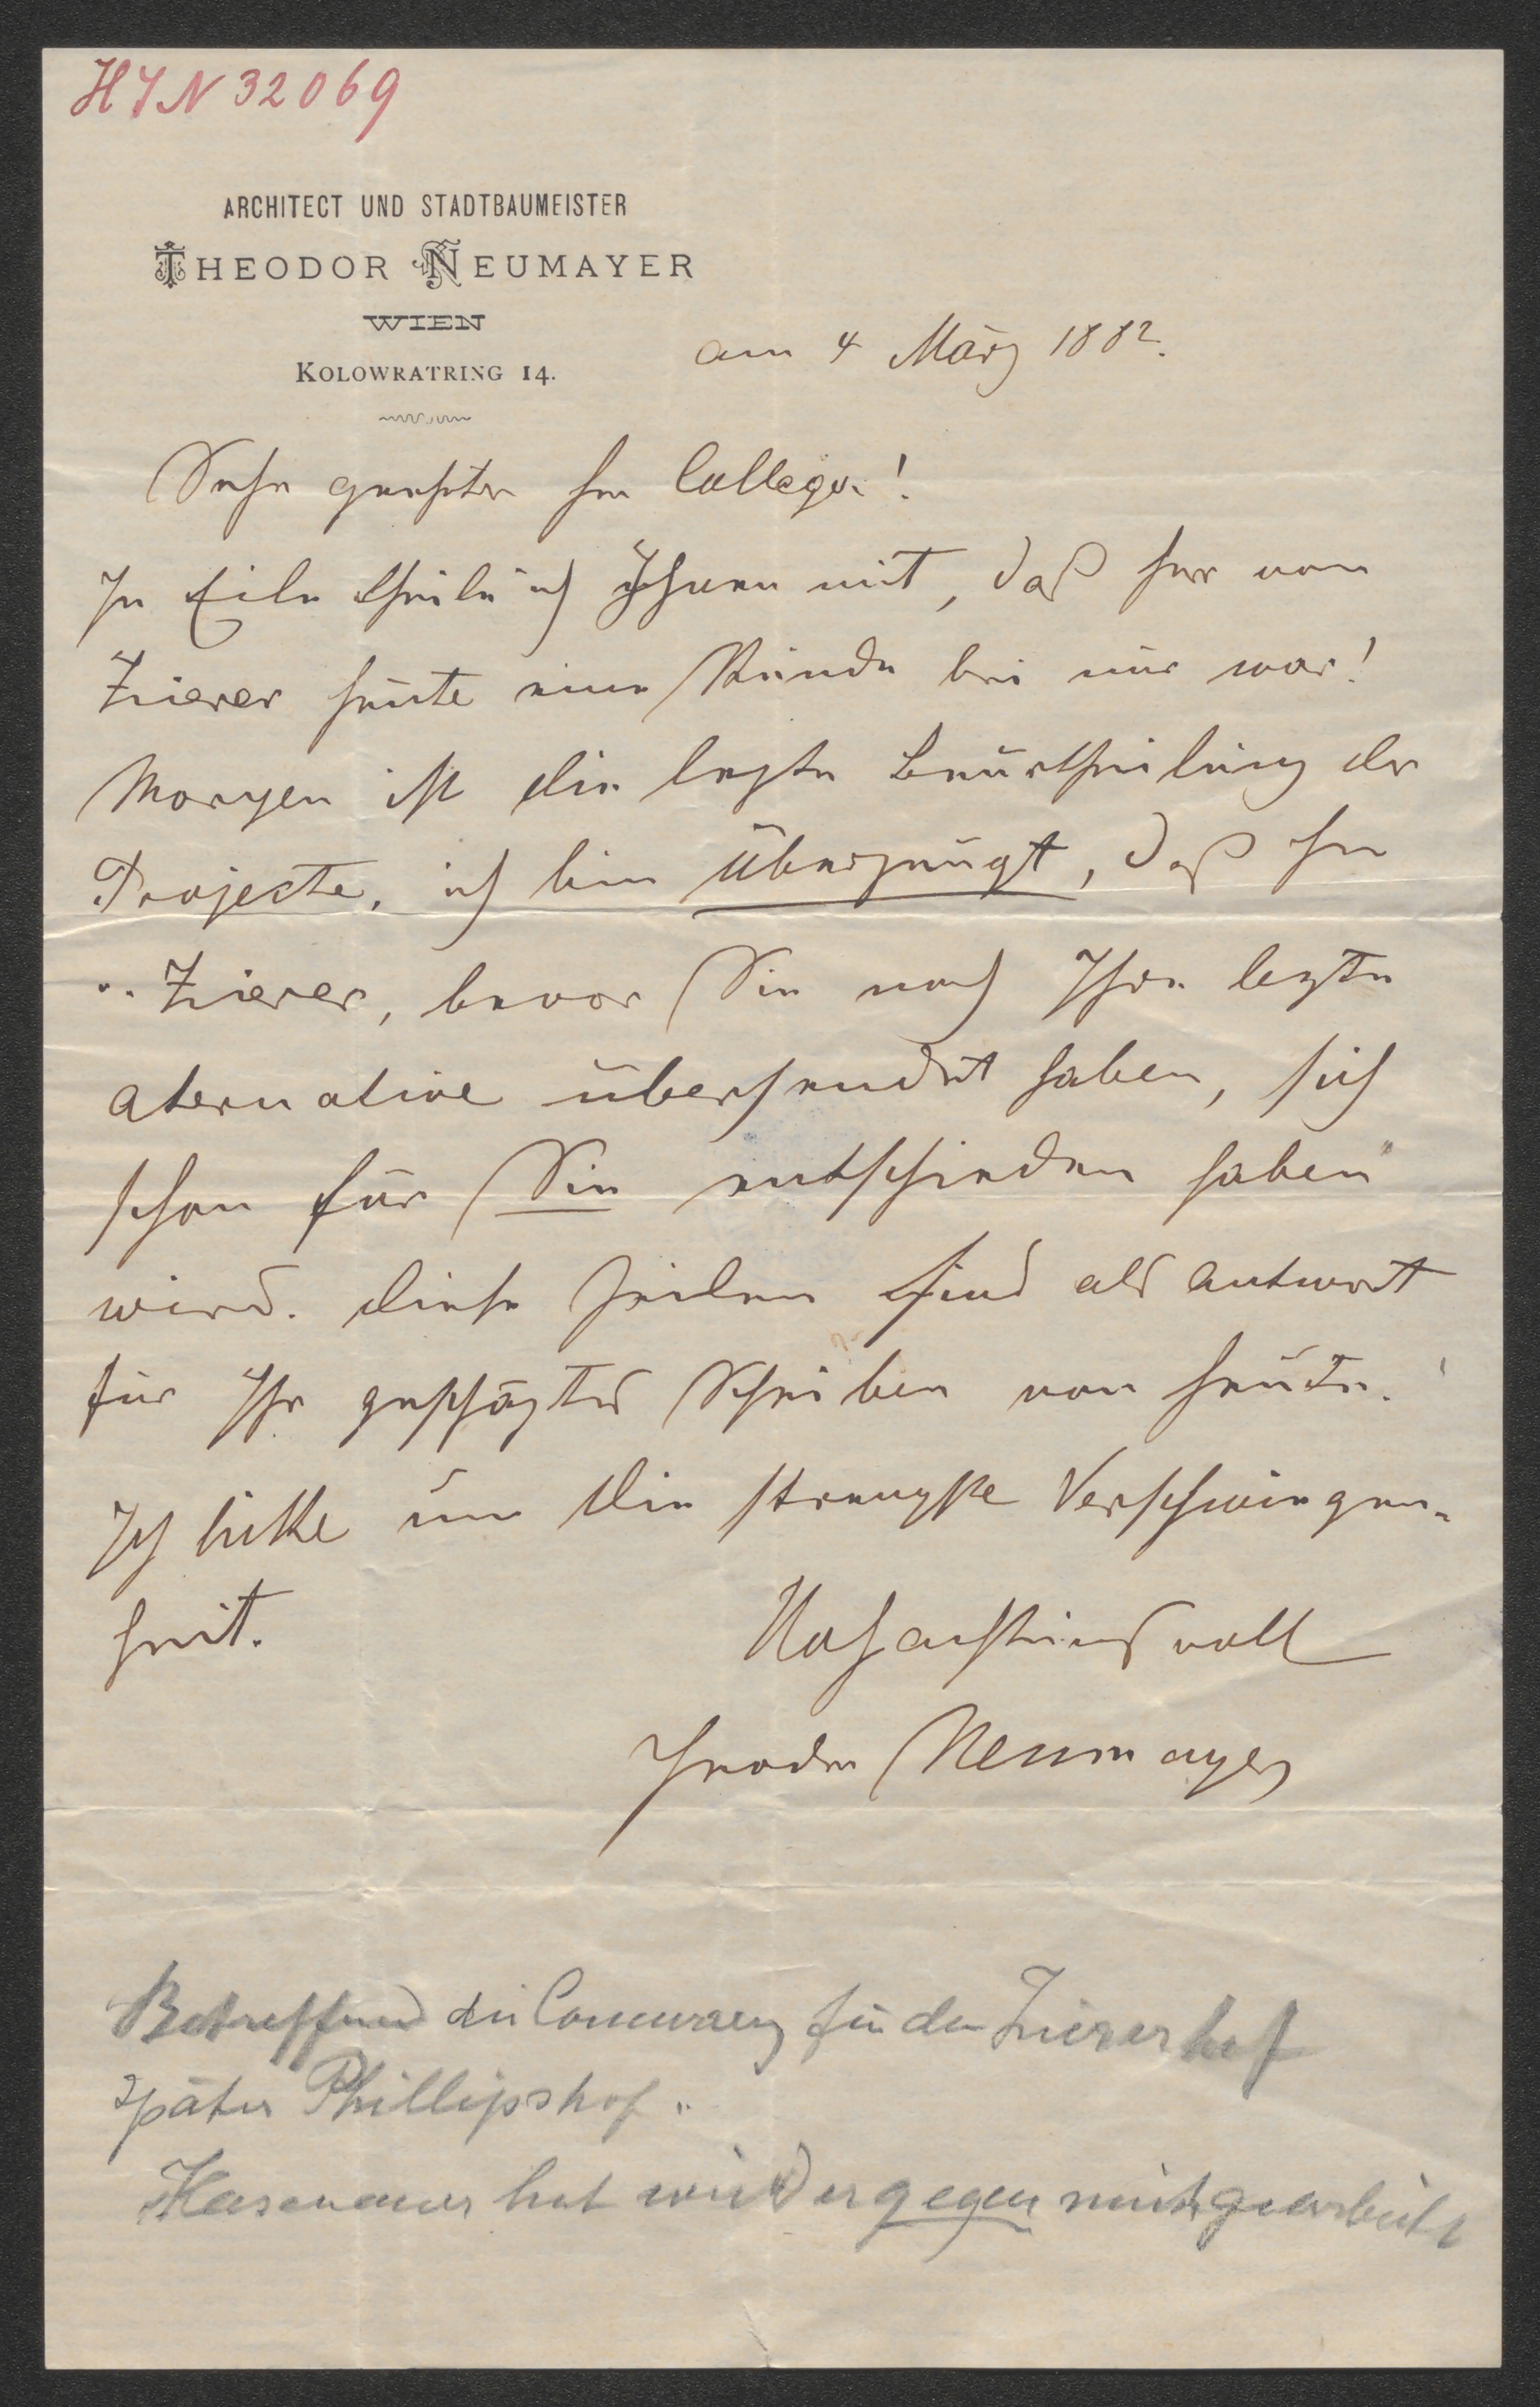 HIN 32069
ARCHITECT UND STADTBAUMEISTER
THEODOR NEUMAYER
WIEN
KOLOWRATRING 14.
am 4 März 1882.
Sehr geehrter Herr College!
In Eile theile ich Ihnen mit, daß Herr von
Zierer heute eine Stunde bei mir war!
Morgen ist die lezte Beurtheilung der
Projecte, ich bin überzeugt, daß Herr
v. Zierer, bevor Sie noch Ihre lezte
Aternative übersendet haben, sich
schon für Sie entschieden haben
wird. Diese Zeilen sind als Antwort
für Ihr geschäztes Schreiben von heute.
Ich bitte um die strengste Verschwiegen-
heit.
Hochachtungsvoll
Theodor Neumayer
Betreffend die Concurrenz für den Ziererhof
später Phillipshof.
Hasenauer hat wieder gegen mich gearbeitet